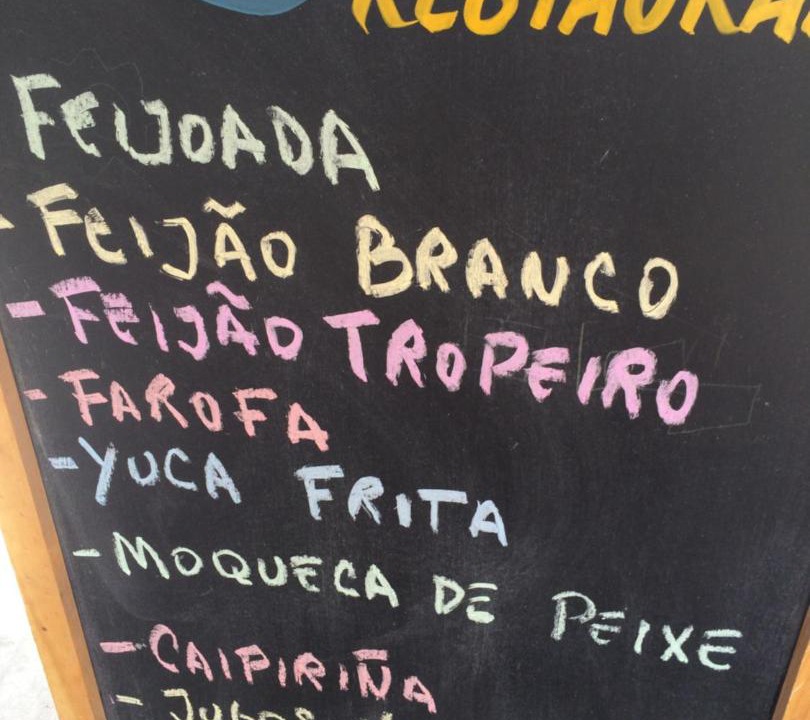 FEIJOADA
- FEIJÃO BRANCO
- FEIJÃO TROPEIRO
- FAROFA
- YUCA FRITA
- MOQUECA DE PEIXE
- CAIPIRIÑA